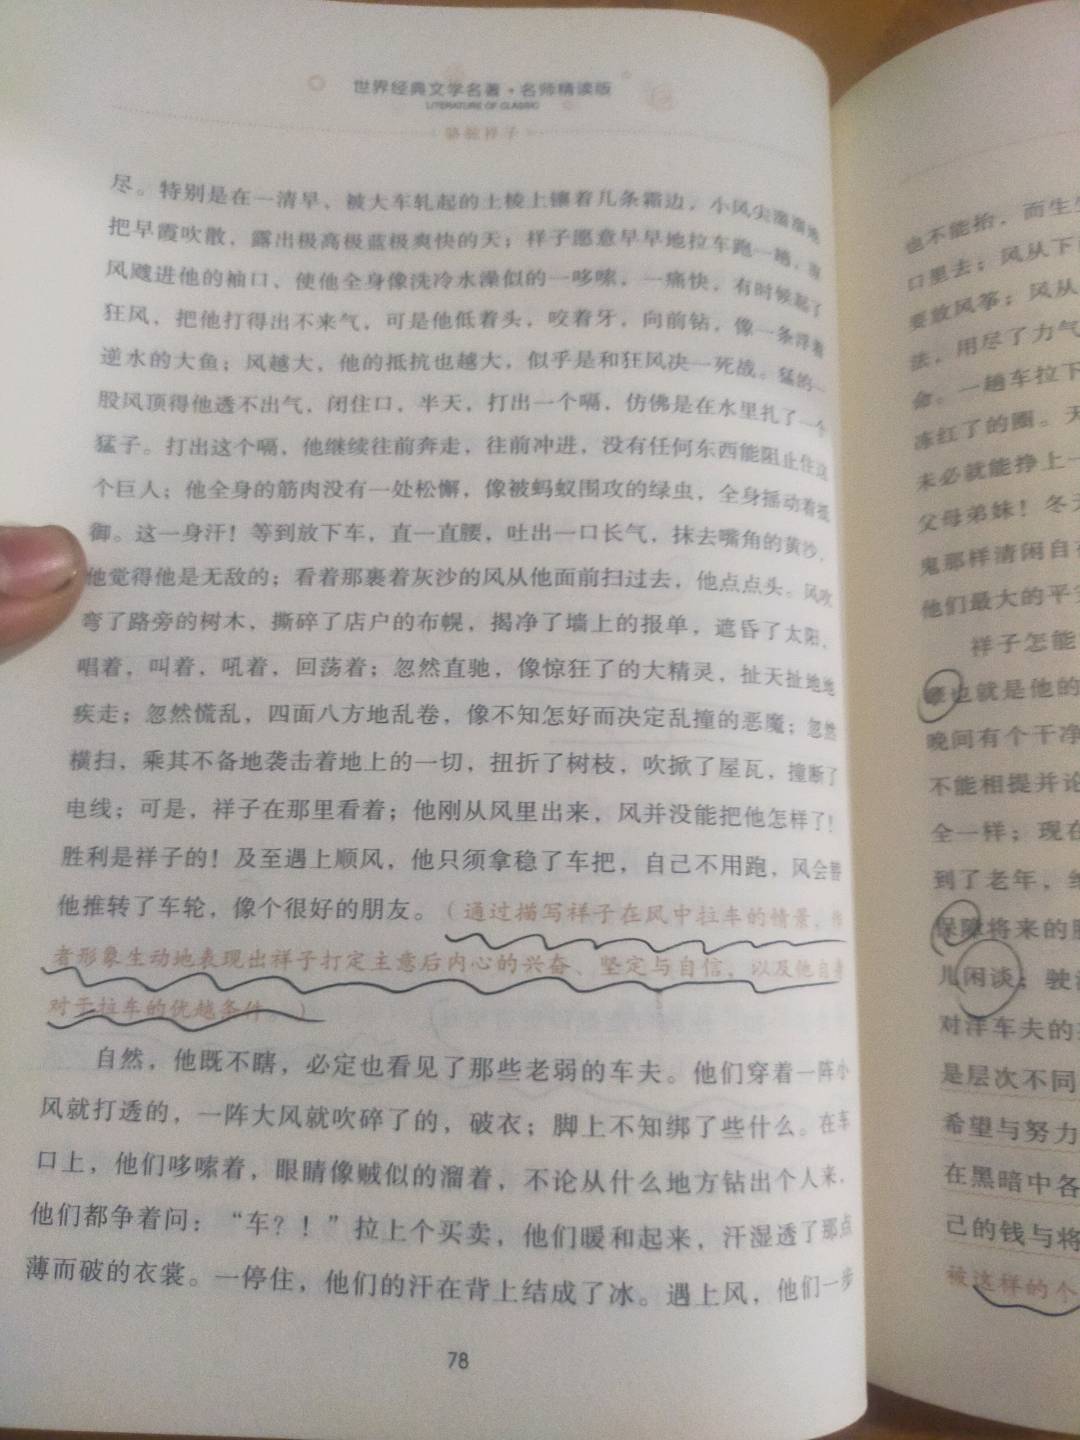 世界经典文学名著·名师精读版
LITERATURE OF CLASSIC
骆驼祥子
尽。特别是在一清早，被大车轧起的土棱上镶着几条霜边，小风尖溜溜地
把早霞吹散，露出极高极蓝极爽快的天；祥子愿意早早地拉车跑一趟，
风飕进他的袖口，使他全身像洗冷水澡似的一哆嗦，一痛快。有时候起了
狂风，把他打得出不来气，可是他低着头，咬着牙，向前钻，像一条浮着
逆水的大鱼；风越大，他的抵抗也越大，似乎是和狂风决一死战。猛的一
股风顶得他透不出气，闭住口，半天，打出一个嗝，仿佛是在水里扎了一个
猛子。打出这个嗝，他继续往前奔走，往前冲进，没有任何东西能阻止住这
个巨人；他全身的筋肉没有一处松懈，像被蚂蚁围攻的绿虫，全身摇动着抵
御。这一身汗！等到放下车，直一直腰，吐出一口长气，抹去嘴角的黄沙，
他觉得他是无敌的；看着那裹着灰沙的风从他面前扫过去，他点点头。风吹
弯了路旁的树木，撕碎了店户的布幌，揭净了墙上的报单，遮昏了太阳，
唱着，叫着，吼着，回荡着；忽然直驰，像惊狂了的大精灵，扯天扯地地
疾走；忽然慌乱，四面八方地乱卷，像不知怎好而决定乱撞的恶魔；忽然
横扫，乘其不备地袭击着地上的一切，扭折了树枝，吹掀了屋瓦，撞断了
电线；可是，祥子在那里看着；他刚从风里出来，风并没能把他怎样了！
胜利是祥子的！及至遇上顺风，他只须拿稳了车把，自己不用跑，风会替
他推转了车轮，像个很好的朋友。（通过描写祥子在风中拉车的情景，作
者形象生动地表现出祥子打定主意后内心的兴奋、坚定与自信，以及他自身
对于拉车的优越条件。）
自然，他既不瞎，必定也看见了那些老弱的车夫。他们穿着一阵小
风就打透的，一阵大风就吹碎了的，破衣；脚上不知绑了些什么。在车
口上，他们哆嗦着，眼睛像贼似的溜着，不论从什么地方钻出个人来，
他们都争着问：“车？！”拉上个买卖，他们暖和起来，汗湿透了那点
薄而破的衣裳。一停住，他们的汗在背上结成了冰。遇上风，他们一步
78
也不能抬，而生生
口里去；风从下
要放风筝；风从
法，用尽了力气
命。一趟车拉下
冻红了的圈。天
未必就能挣上一
父母弟妹！冬天
鬼那样清闲自在
他们最大的平安
祥子怎能
也就是他的
晚间有个干净
不能相提并论
全一样；现在
到了老年，终
保障将来的
儿闲谈；驶
对洋车夫的
是层次不同
希望与努力
在黑暗中各
己的钱与将
被这样的个